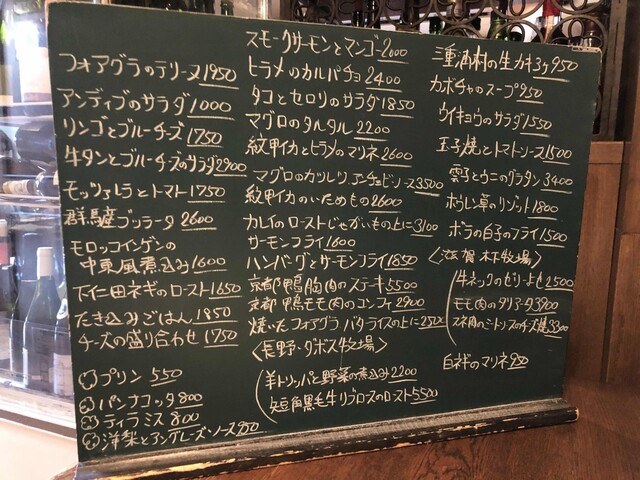 フォアグラのテリーヌ1950
アンディブのサラダ1000
リンゴとブルーチーズ1750
牛タンとブルーチーズのサラダ2900
モッツァレラとトマト1750
群馬産ブッラータ2600
モロッコインゲンの
中東風煮込み1600
下仁田ネギのロースト1650
たき込みごはん1850
チーズの盛り合わせ1750
プリン 550
パンナコッタ800
ティラミス800
洋梨とアングレーズソース950
スモークサーモンとマンゴー2000
ヒラメのカルパチョ2400
タコとセロリのサラダ1850
マグロのタルタル2200
紋甲イカとヒラメのマリネ2600
マグロのカツレツ、アンチョビソース3500
紋甲イカのいためもの2600
カレイのローストじゃがいもの上に3100
サーモンフライ1600
ハンバーグとサーモンフライ1850
京都鴨胸肉のステーキ5500
京都鴨モモ肉のコンフィ2900
焼いたフォアグラ バターライスの上に2500
〈長野・ダボス牧場〉
羊トリッパと野菜の煮込み2200
短角黒毛牛リブロースのロースト5500
三重浦村の生カキ3ヶ950
カボチャのスープ950
ウイキョウのサラダ1550
玉子焼とトマトソース1500
雲子とウニのグラタン3400
ホウレン草のリゾット1800
ボラの白子のフライ1500
〈滋賀 木下牧場〉
牛ネックのゼリーよせ2500
モモ肉のタリアータ3900
スネ肉のミートソースのチーズ焼3300
白ネギのマリネ950